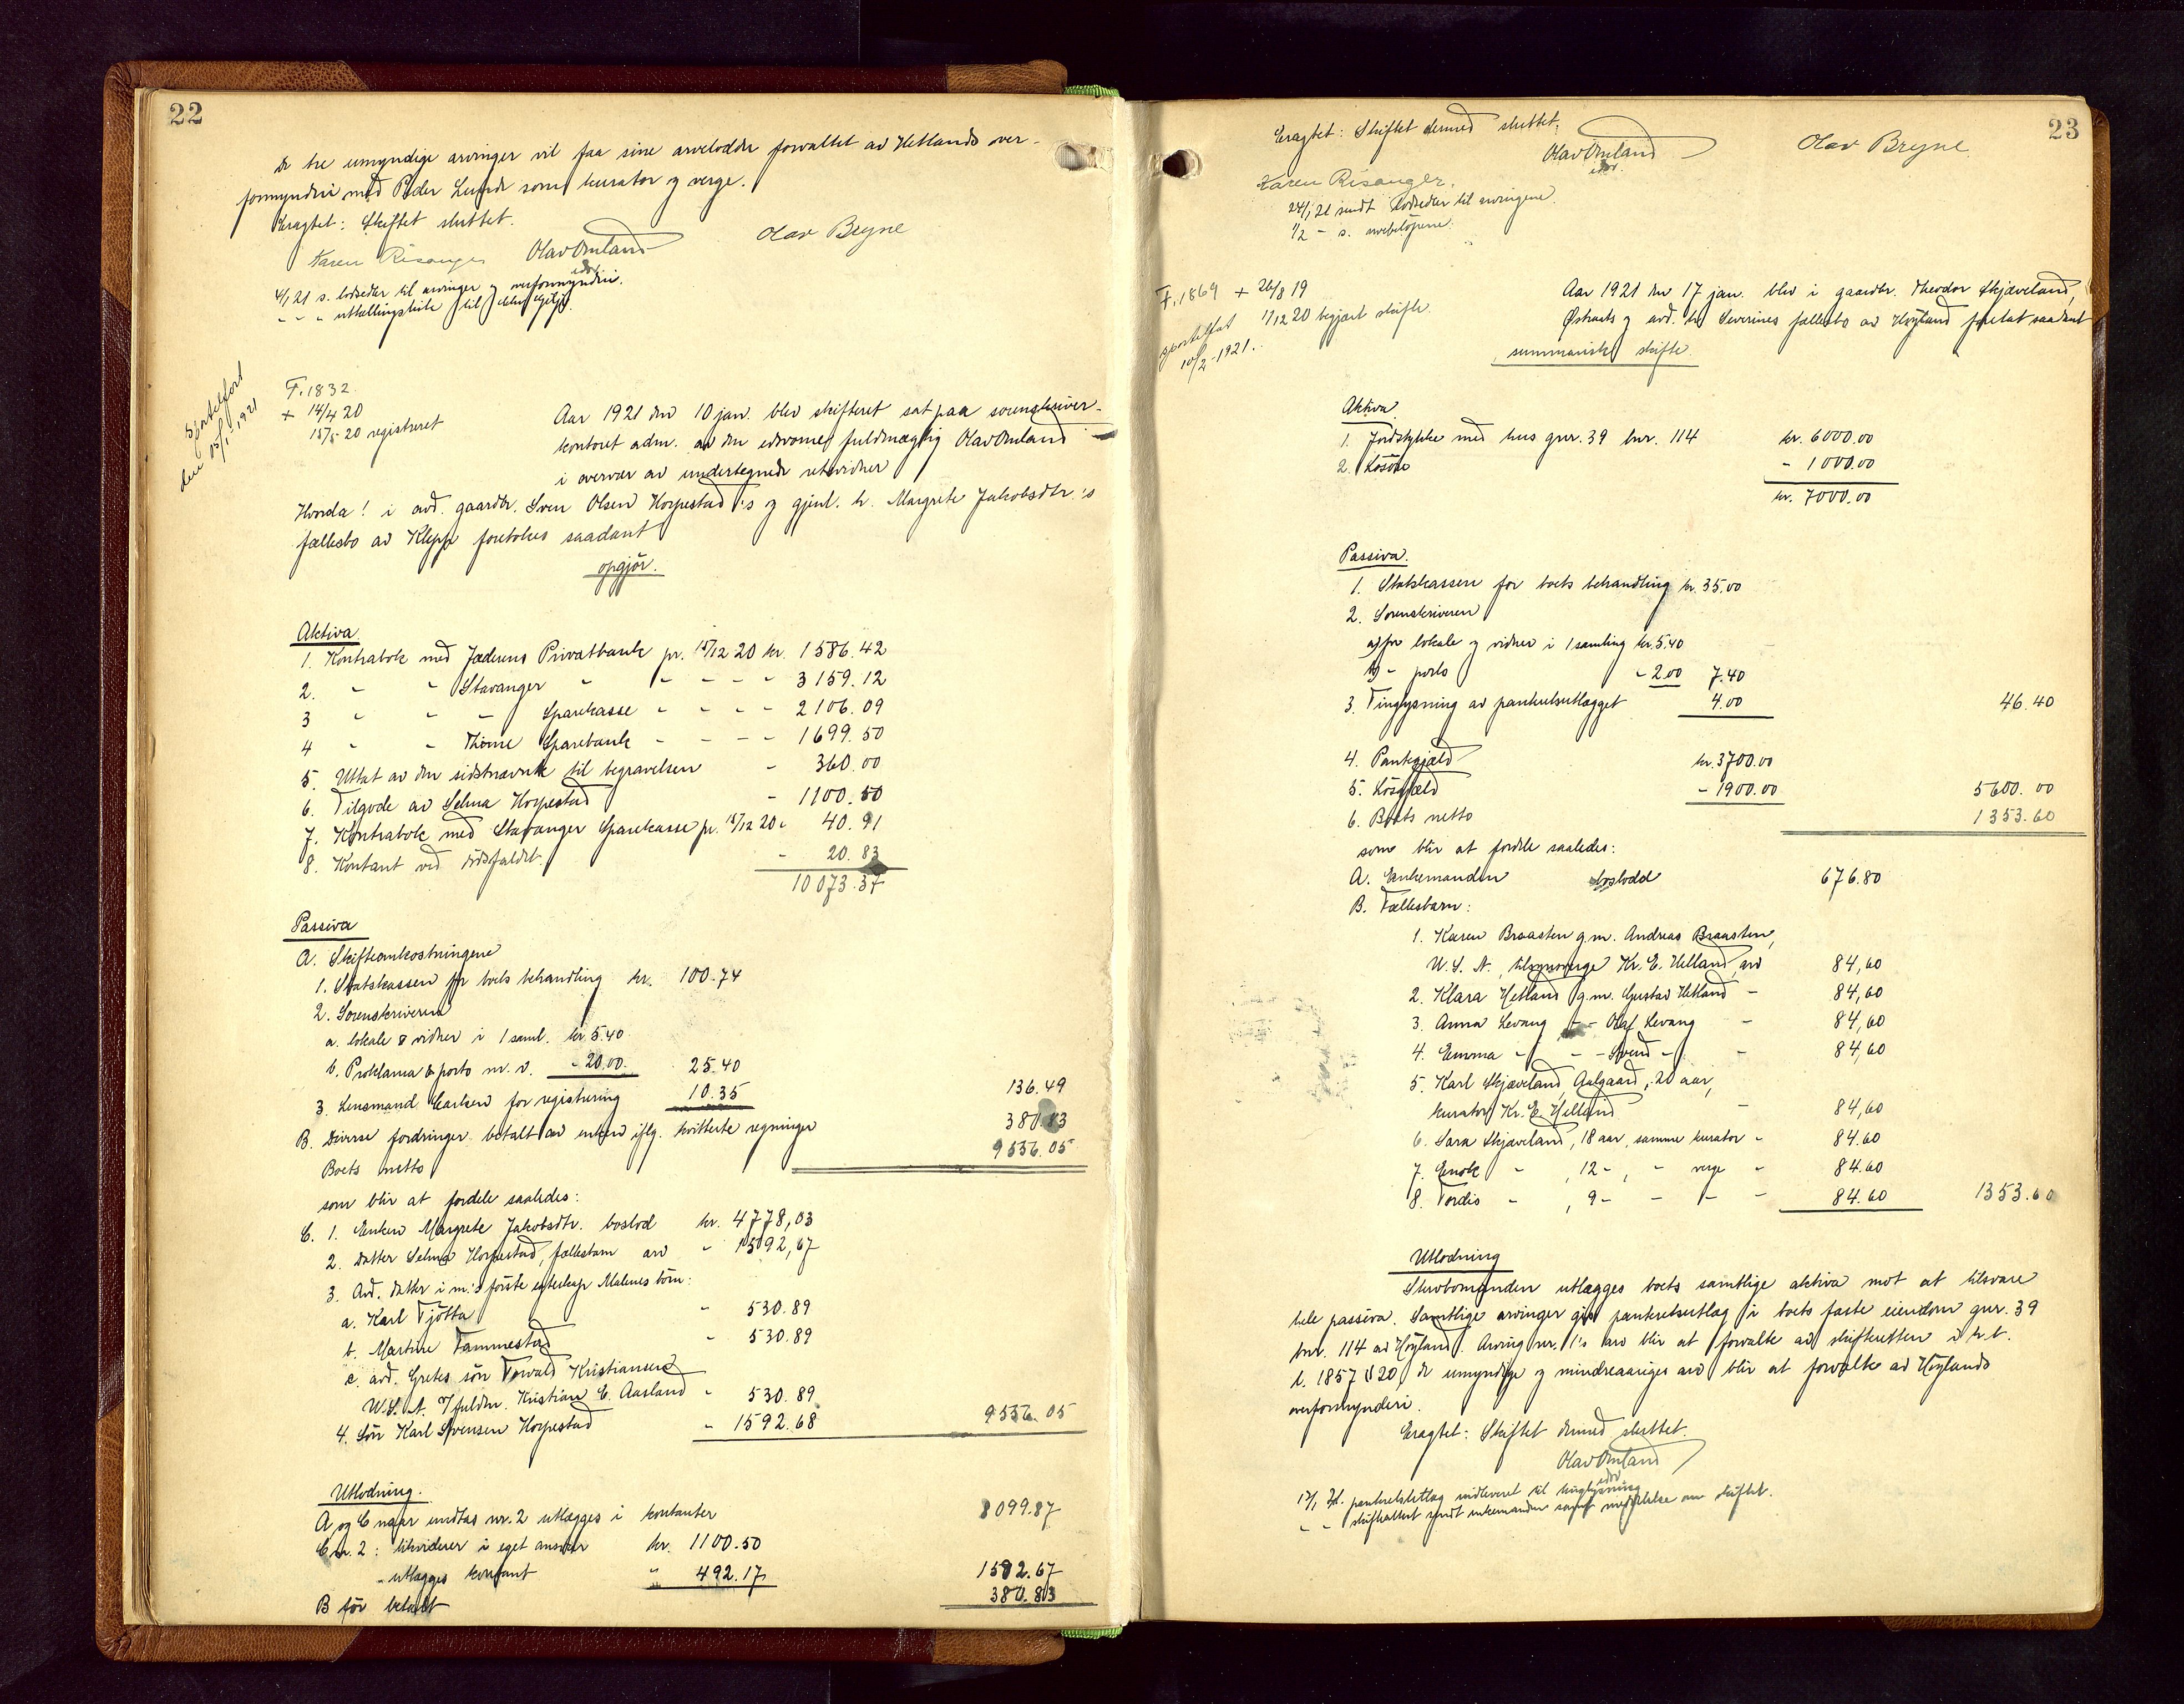 22
de tre umyndige arvinger vil faa sine arvelodder forvaltet av Hetlands over-
formynderi med Peder Lunde som kurator og verge.
Eragtet: Skiftet sluttet.
Karen Risanger Olav Omland Olav Bryne
edsv.
4/1 21 s. lodsedler til arvinger og overformynderi.
" " " utstillingsliste til
Sportelført
den 15/1 1921
F. 1832
+ 14/4 20
15/5 20 registreret
Aar 1921 den 10 jan. blev skifteret sat paa sorenskriver-
kontoret adm. av den edsvorne fuldmægtig Olav Omland
i overvær av undertegnede retsvidner
Hvorda! i avd. gaardbr. Sven Olsen Horpestad's og gjenl. h. Margrete Jakobsdtr.'s
fællesbo av Klepp foretokes saadant
opgjør.
Aktiva
1. Kontrabok med Jæderens Privatbank pr. 15/12 20 kr. 1586.42
2. " " Stavanger " " - - - 3159.12
3 " " " Sparekasse - - - - 2106.09
4 " " Thime Sparebank - - - - 1699.50
5. Uttat av den sidstnævnte til begravelsen - 360.00
6. Tilgode av Selma Horpestad - 1100.50
7. Kontrabok med Stavanger Sparekasse pr. 15/12 20 - 40.91
8. Kontant ved dødsfaldet - 20.83
10073.37
Passiva
A. Skifteomkostningene
1. Statskassen for boets behandling kr. 100.74
2. Sorenskriveren
a. lokale & vidner i 1 saml. kr. 5.40
b. Proklama & porto m. v. - 20.00 25.40
3. Lensmand Carlsen for registrering 10.35 136.49
B. Diverse fordringer betalt av enken iflg. kvitterte regninger 380.83
Boets netto 9556.05
som blir at fordele saaledes:
C. 1. Enken Margrete Jakobsdtr. boslod kr. 4778,03
2. Datter Selma Horpestad, fællesbarn arv - 1592,67
3. Avd. datter i m.'s første egteskap Malenes børn:
a. Karl Tjøtta - 530.89
b. Martine Tammestad - 530.89
c. avd. Gretes søn Torvald Kristiansen
U.S.A. v/fuldm. Kristian E. Aasland - 530.89
4. Søn Karl Svensen Horpestad - 1592.68 9556.05
Utlodning.
A og C naar undtas nr. 2 utlægges i kontanter 8099.87
C nr. 2: likviderer i eget ansvar kr. 1100.50
- utlægges kontant " 492.17 1592.67
B før betalt 380.83
23
Eragtet: Skiftet dermed sluttet.
Olav Omland Olav Bryne
edsv.
Karen Risanger.
24/1 21 sendt lodsedler til arvingene.
1/2 - s. arvebeløpene.
F. 1869 + 26/8 19
1/12 20 begjært skifte.
Sportelført
10/2-1921.
Aar 1921 den 17 jan. blev i gaardbr. Theodor Skjæveland,
Østraats og avd. h. Severines fællesbo av Høyland foretat saadant
summarisk skifte.
Aktiva
1. Jordstykke med hus gnr. 39 bnr. 114 kr. 6000.00
2. Løsøre - 1000.00
kr. 7000.00
Passiva.
1. Statskassen for boets behandling kr. 35.00
2. Sorenskriveren
a) for lokale og vidner i 1 samling kr. 5.40
b) - porto - 2.00 7.40
3. Tinglysning av panteretsutlægget 4.00 46.40
4. Pantegjæld kr. 3700.00
5. Løsgjæld - 1900.00 5600.00
6. Boets netto 1353.60
som blir at fordele saaledes:
A. Enkemanden boslodd 676.80
B. Fællesbarn:
1. Karen Braasten g.m. Andreas Braasten,
U.S.A., tilsynsverge Kr. E. Helland arv 84,60
2. Klara Hetland g.m. Gustav Hetland - 84,60
3. Anna Levang - - Olaf Levang - 84,60
4. Emma - - - Svend - - 84,60
5. Karl Skjæveland, Aalgaard, 20 aar,
kurator Kr. E. Helland - 84,60
6. Sara Skjæveland, 18 aar, samme kurator - 84.60
7. Enok - , 12 -, - verge - 84.60
8. Tordis - , 9 - - - - 84.60 1353.60
Utlodning
Skivebomanden utlægges boets samtlige aktiva mot at tilsvare
hele passiva. Samtlige arvinger gis panteretsutlæg i boets faste eiendom gnr. 39
bnr. 114 av Høyland. Arving nr. 1's arv blir at forvalte av skifteretten i h.t.
l. 1857 § 20, de umyndige og mindreaariges arv blir at forvalte av Høylands
overformynderi.
Eragtet: Skiftet dermed sluttet.
Olav Omland
edsv.
17/1 21. panteretsutlæg indleveret til tinglysning
" - skifteattest sendt enkemanden samt meddelelse om skiftet.